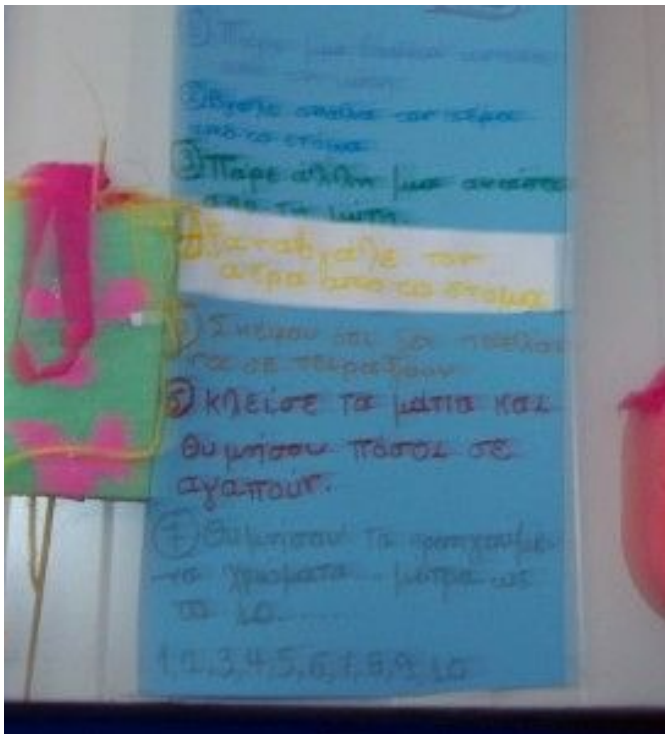 ① Πάρε μια
② Βγάλε απαλά τον αέρα
από το στόμα
③ Πάρε άλλη μια ανάσα
από τη μύτη.
④ Ξαναβγάλε τον
αέρα από το στόμα
⑤ Σκέψου ότι δεν
να σε πειράξουν
⑥ κλείσε τα μάτια και
θυμήσου πόσοι σε
αγαπούν.
⑦ Θυμήσου τα προηγούμε-
να χρώματα... μέτρα ως
το 10......
1,2,3,4,5,6,7,8,9,10